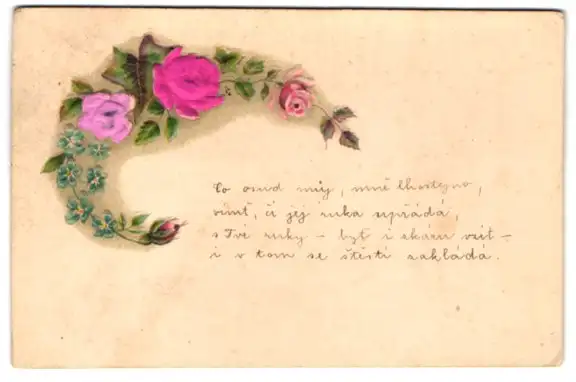 Co osud můj, mně lhostejno,
vímť, čí jej ruka upřádá,
s Tvé ruky – byť i zkázu vzít –
i v tom se štěstí zakládá.